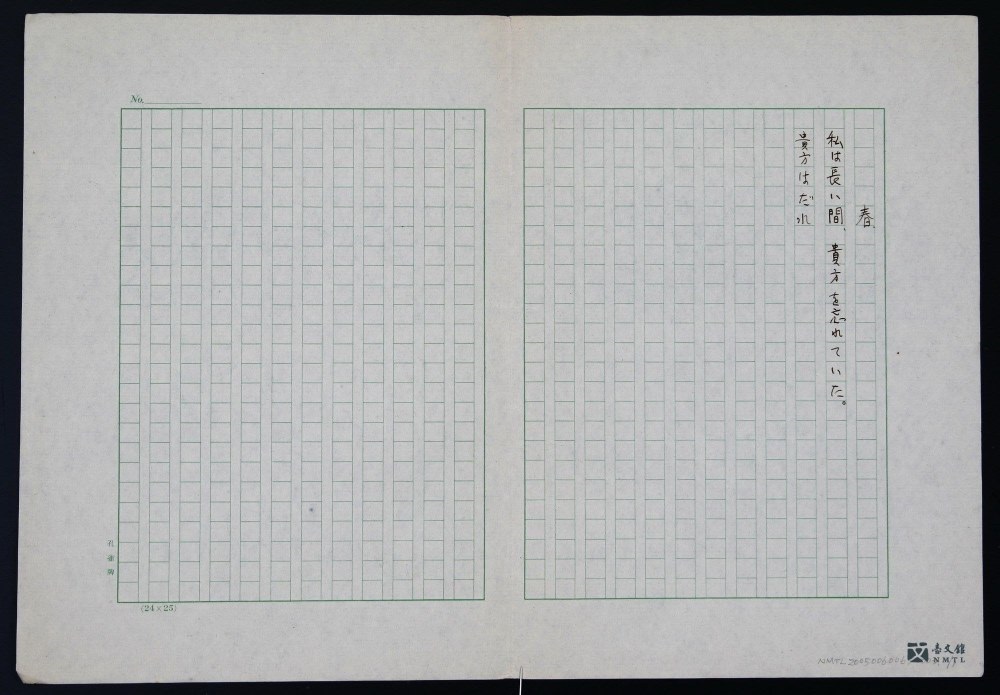 春
私は長い間、貴方を忘れていた。
貴方はだれ
No.
孔雀牌
(24×25)
台文館
NMTL